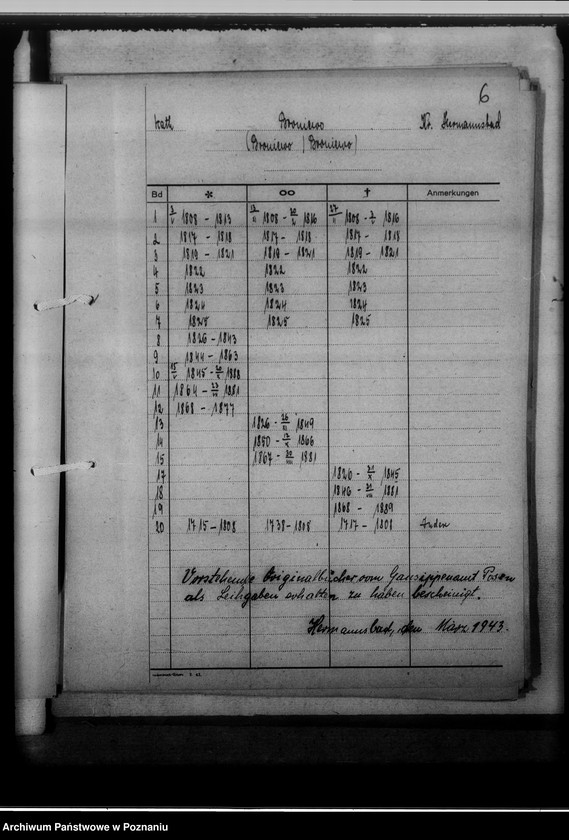 6
kath. Broniewo Kr. Hermannsbad
(Broniewo / Broniewo)
Bd * ∞ † Anmerkungen
1 3/V 1808 - 1813 12/II 1808 - 20/V 1816 27/II 1808 - 2/V 1816
2 1817 - 1818 1817 - 1818 1817 - 1818
3 1819 - 1821 1819 - 1821 1819 - 1821
4 1822 1822 1822
5 1823 1823 1823
6 1824 1824 1824
7 1825 1825 1825
8 1826 - 1843
9 1844 - 1863
10 15/V 1845 - 20/X 1888
11 1864 - 23/VII 1881
12 1868 - 1877
13 1826 - 26/III 1849
14 1850 - 13/X 1866
15 1867 - 30/VIII 1881
17 1826 - 21/X 1845
18 1846 - 21/VII 1881
19 1868 - 1889
20 1715 - 1808 1738 - 1808 1717 - 1808
Vorstehende Originalbücher vom Gausippenamt Posen
als Leihgaben erhalten zu haben bescheinigt.
Hermannsbad, den März 1943.
Archiwum Państwowe w Poznaniu